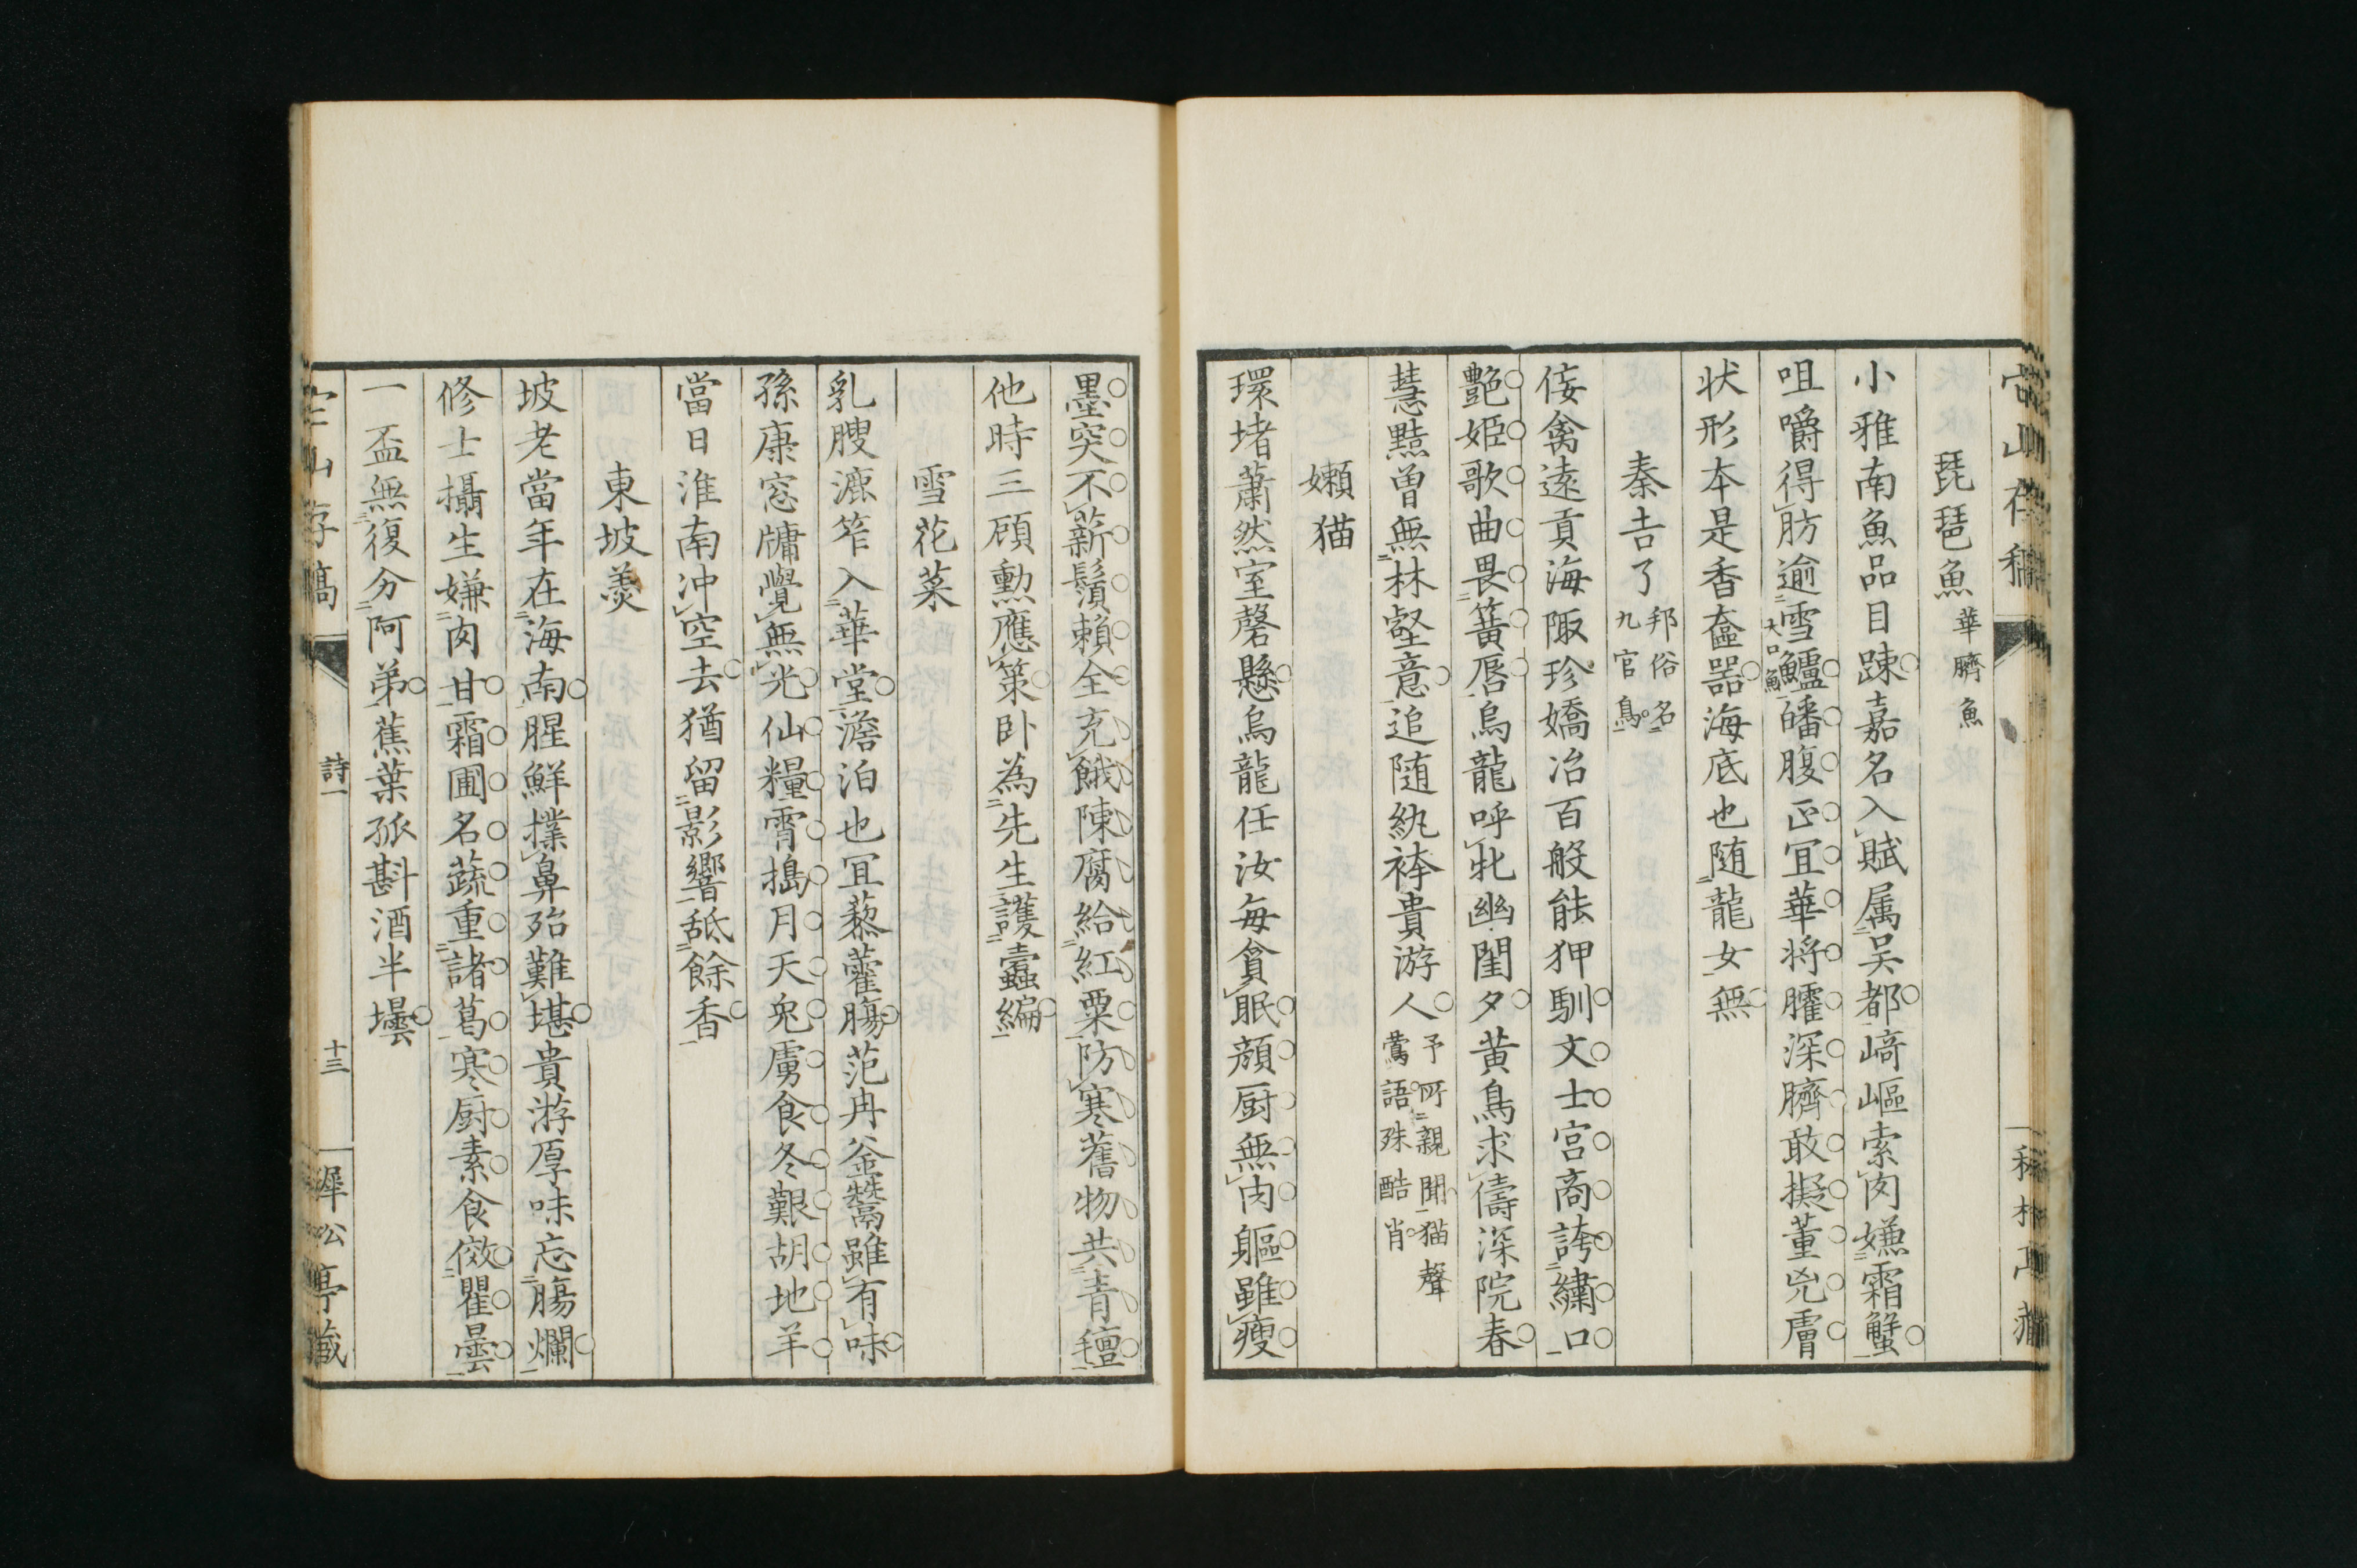 琵琶魚 華臍魚
小雅南魚品目踈嘉名入賦属吴都﨑嶇索肉嫌霜蟹
咀嚼得肪逾雪鱸大口魚皤腹正宜華将臛深臍敢擬董兇膚
状形本是香奩噐海底也随龍女無
秦吉了 邦俗名九官鳥
倿禽遠貢海陬珍嬌冶百般能狎馴文士宮商誇繡口
艶姫歌曲畏簧唇烏龍呼牝幽閨夕黄鳥求儔深院春
慧黠曽無林壑意追随紈袴貴游人 予所親聞猫聲鶯語殊酷肖
嬾猫
環堵蕭然室磬懸烏龍任汝毎貪眠頽厨無肉軀雖瘦
墨突不薪鬚賴全充餓陳腐給紅粟防寒舊物共青氊
他時三顧勲應策卧為先生護蠹編
雪花菜
乳膄漉笮入華堂澹泊也冝藜藿腸范冉釡鬵雖有味
孫康窓牗覺無光仙糧霄搗月天兔虜食冬艱胡地羊
當日淮南冲空去猶留影響舐餘香
東坡羮
坡老當年在海南腥鮮撲鼻殆難堪貴游厚味忘腸爛
修士攝生嫌肉甘霜圃名蔬重諸葛寒厨素食傚瞿曇
一盃無復分阿弟蕉葉孤斟酒半壜
詩一
十三
犀松亭藏